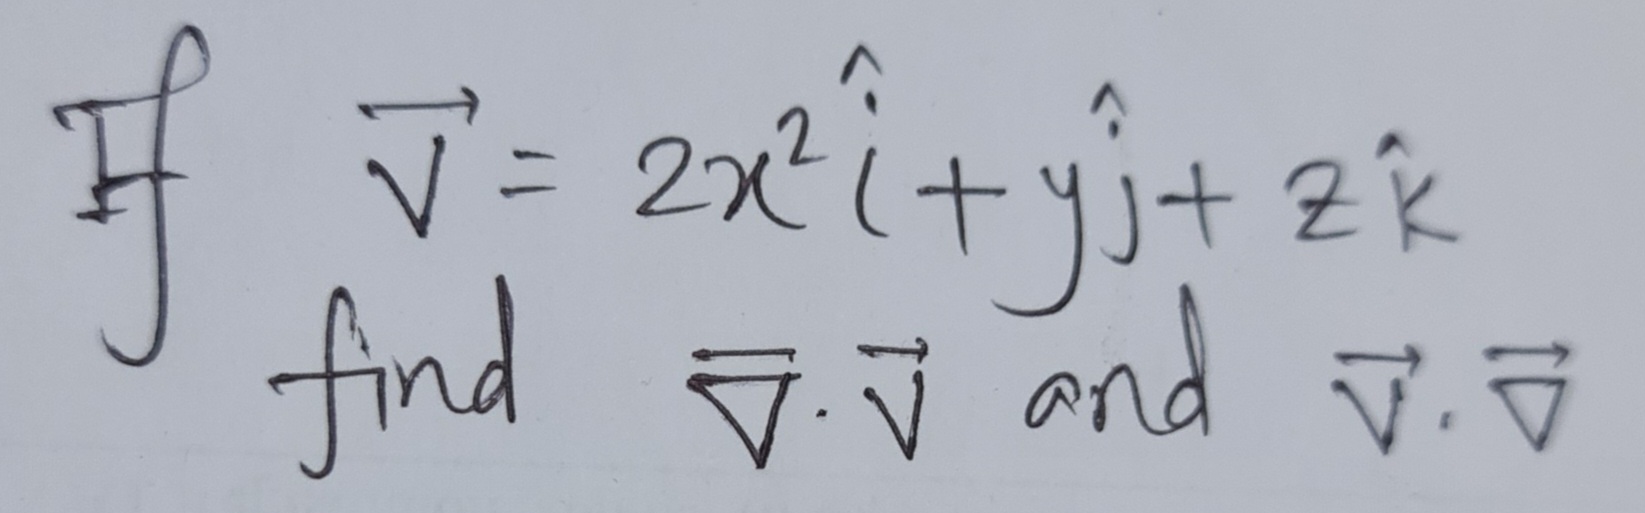 If V⃗ = 2x² î + y ĵ + z k̂
find ∇⃗ . V⃗ and V⃗ . ∇⃗